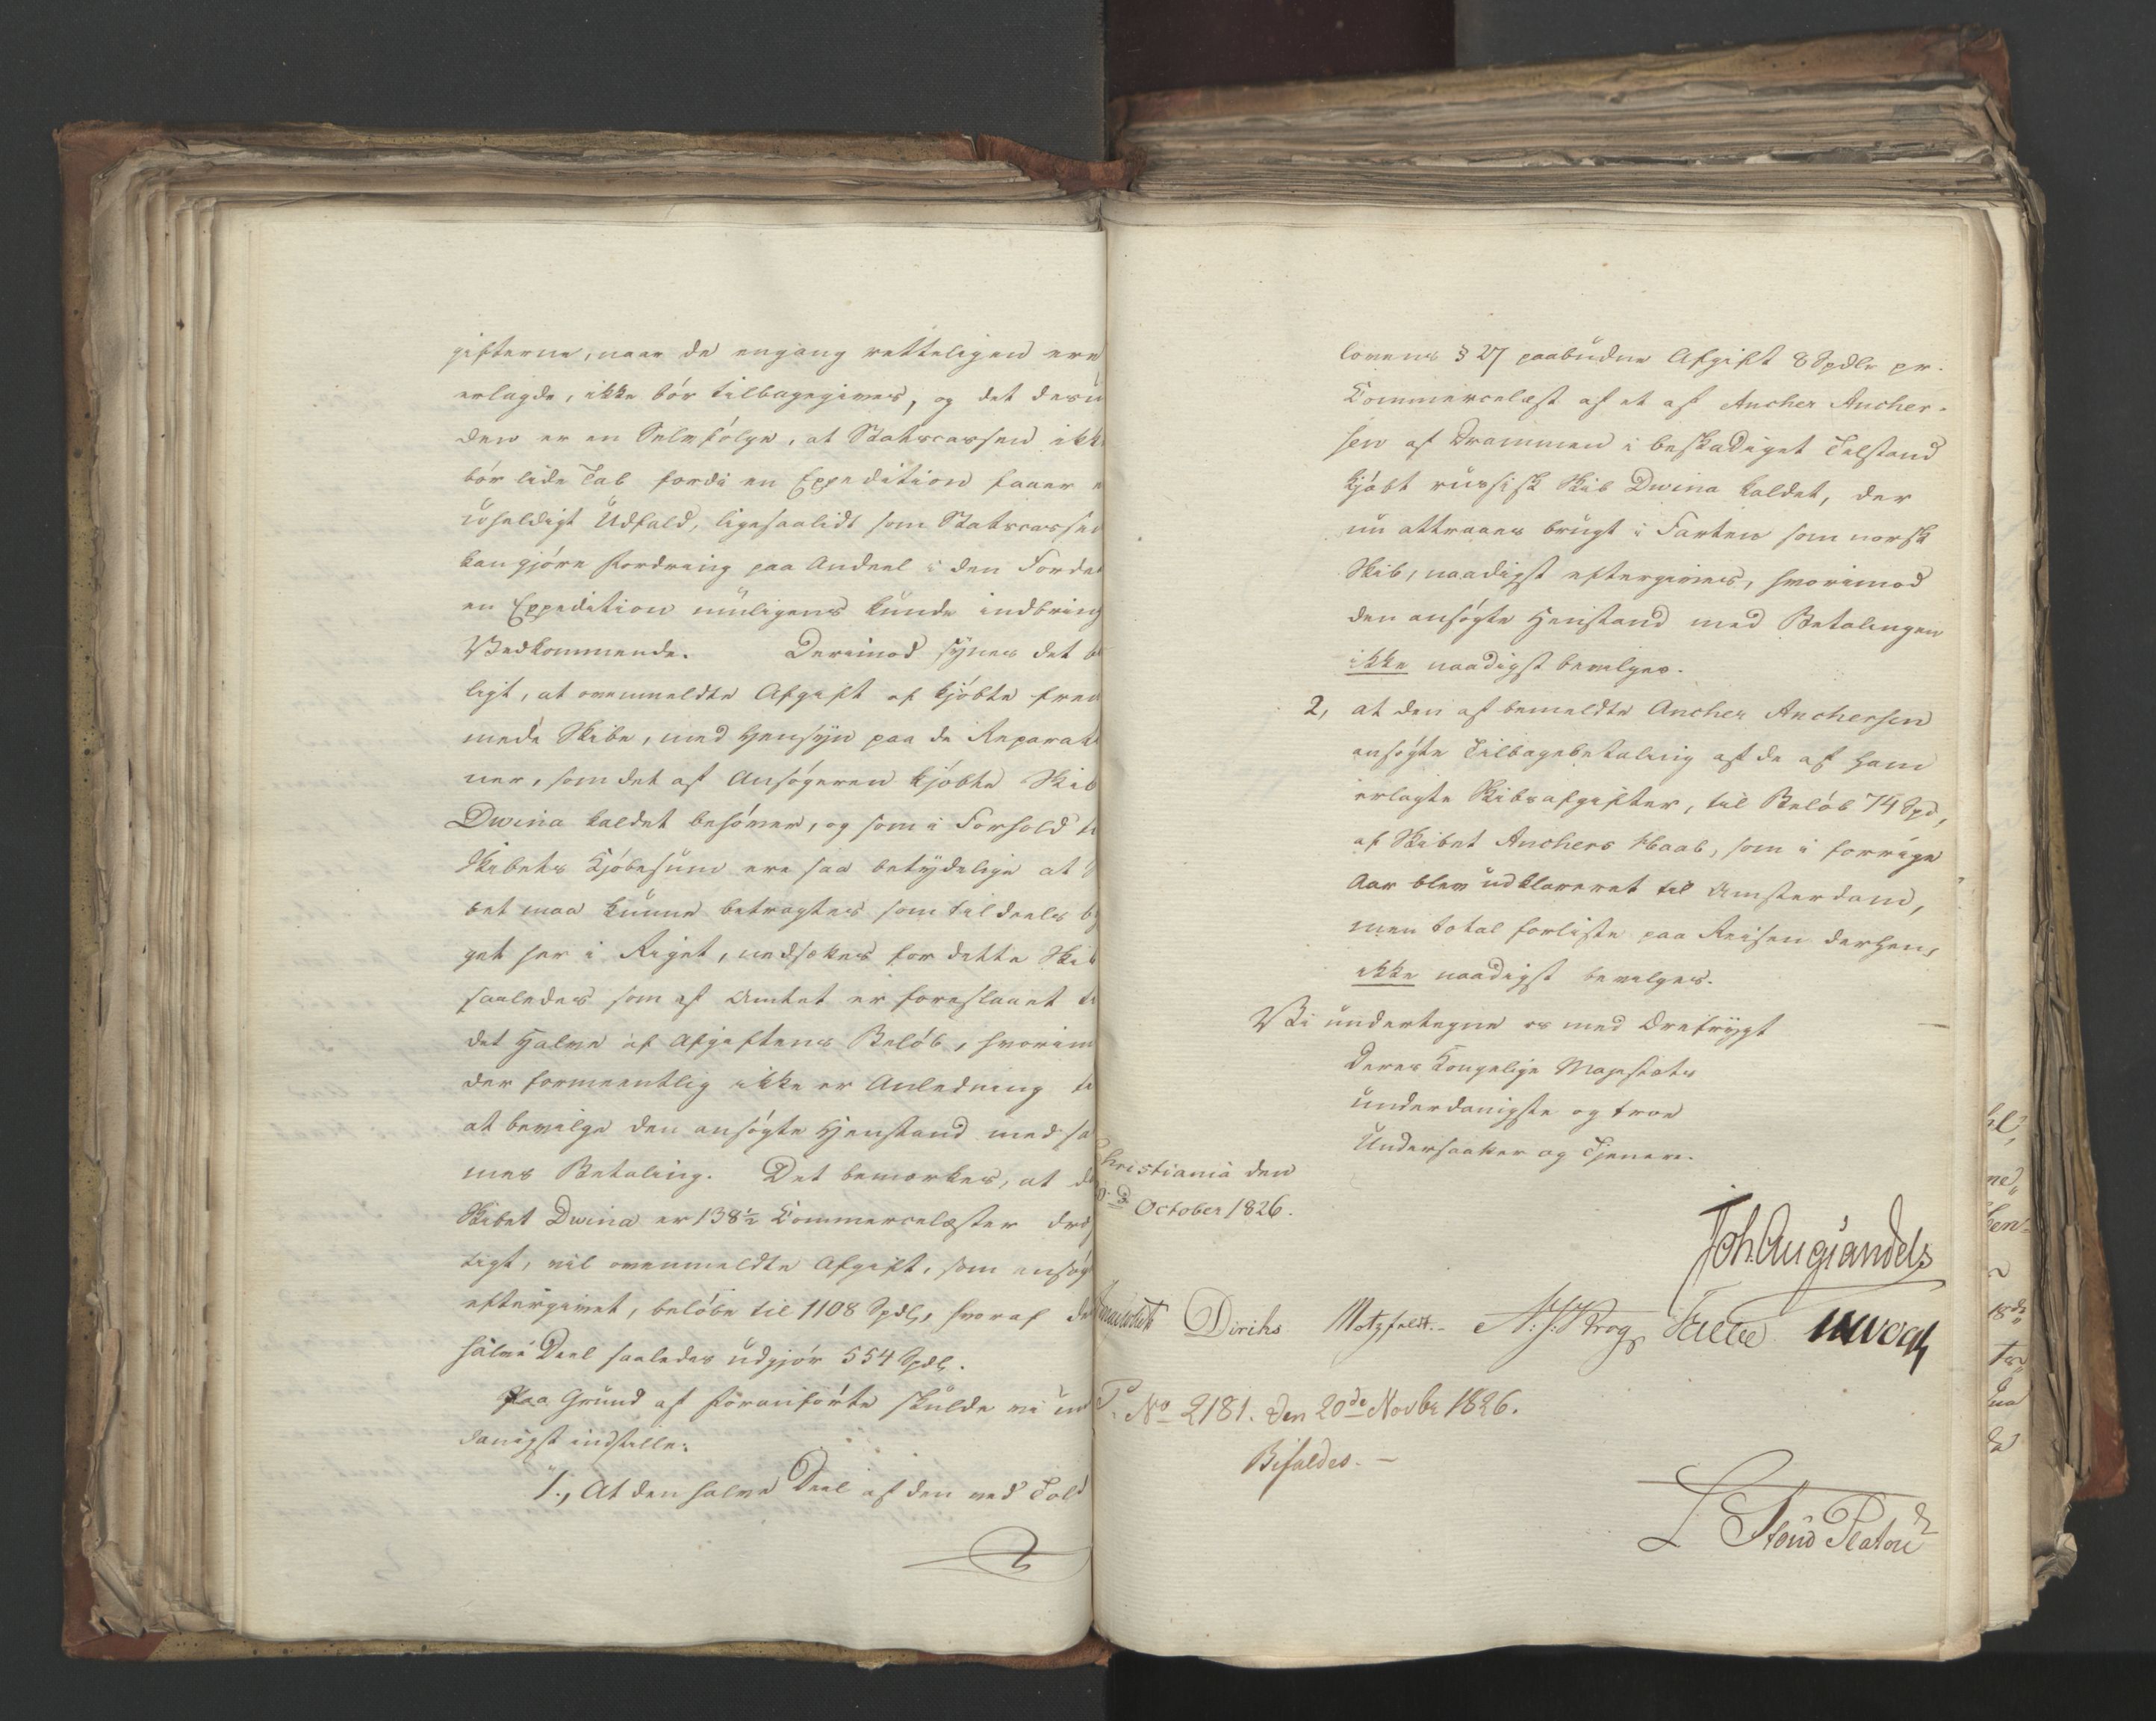 gifterne, naar de engang retteligen ere
erlagde, ikke bör tilbagegives, og det desu
den er en Selvfölge, at Statscassen ikk
bör lide Tab fordi en Expedition faaer e
uheldigt Udfald, ligesaalidt som Statscassen
kan gjöre Fordring paa Andeel i den Fordel
en Expedition muligens kunde indbring
Vedkommende. Derimod synes det b
ligt, at ovenmeldte Afgift af kjöbte frem
mede Skibe, med Hensyn paa de Reparati
ner, som det af Ansögeren kjöbte Skib
Dwina kaldet behöver, og som i Forhold ti
Skibets Kjöbesum ere saa betydelige at S
bet maa kunne betragtes som tildeels b
get her i Riget, nedsættes for dette Skib
saaledes som af Amtet er foreslaaet ti
det Halve af Afgiftens Belöb, hvorim
der formeentlig ikke er Anledning ti
at bevilge den ansögte Henstand med sa
mes Betaling. Det bemærkes, at da
Skibet Dwina er 138½ Commercelæster dræg
tigt, vil ovenmeldte Afgift, som ansög
eftergivet, belöbe til 1108 Spdlr, hvoraf de
halve Deel saaledes udgjör 554 Spdlr.
Paa Grund af Foranförte skulde vi un
danigst indstille:
1., At den halve Deel af den ved Told
lovens § 27 paabudne Afgift 8 Spdlr pr.
Commercelæst af et af Ancher Ancher-
sen af Drammen i beskadiget Tilstand
kjöbt russisk Skib Dwina kaldet, der
nu attraaes brugt i Farten som norsk
Skib, naadigst eftergives, hvorimod
den ansögte Henstand med Betalingen
ikke naadigst bevilges.
2, at den af bemeldte Ancher Anchersen
ansögte Tilbagebetaling af de af ham
erlagte Skibsafgifter, til Belöb 74 Spd,
af Skibet Anchers Haab, som i forrige
Aar blev udklareret til Amsterdam,
men total forliste paa Reisen derhen,
ikke naadigst bevilges.
Vi undertegne os med Ærefrygt
Deres Kongelige Majestæts
underdanigste og troe
Undersaatter og Tjenere.
Christiania den
October 1826.
Joh. Aug. Sandels
Diriks Motzfeldt. Krog Falbe Vogt
P. No 2181. Den 20de Novbr 1826.
Bifaldes.